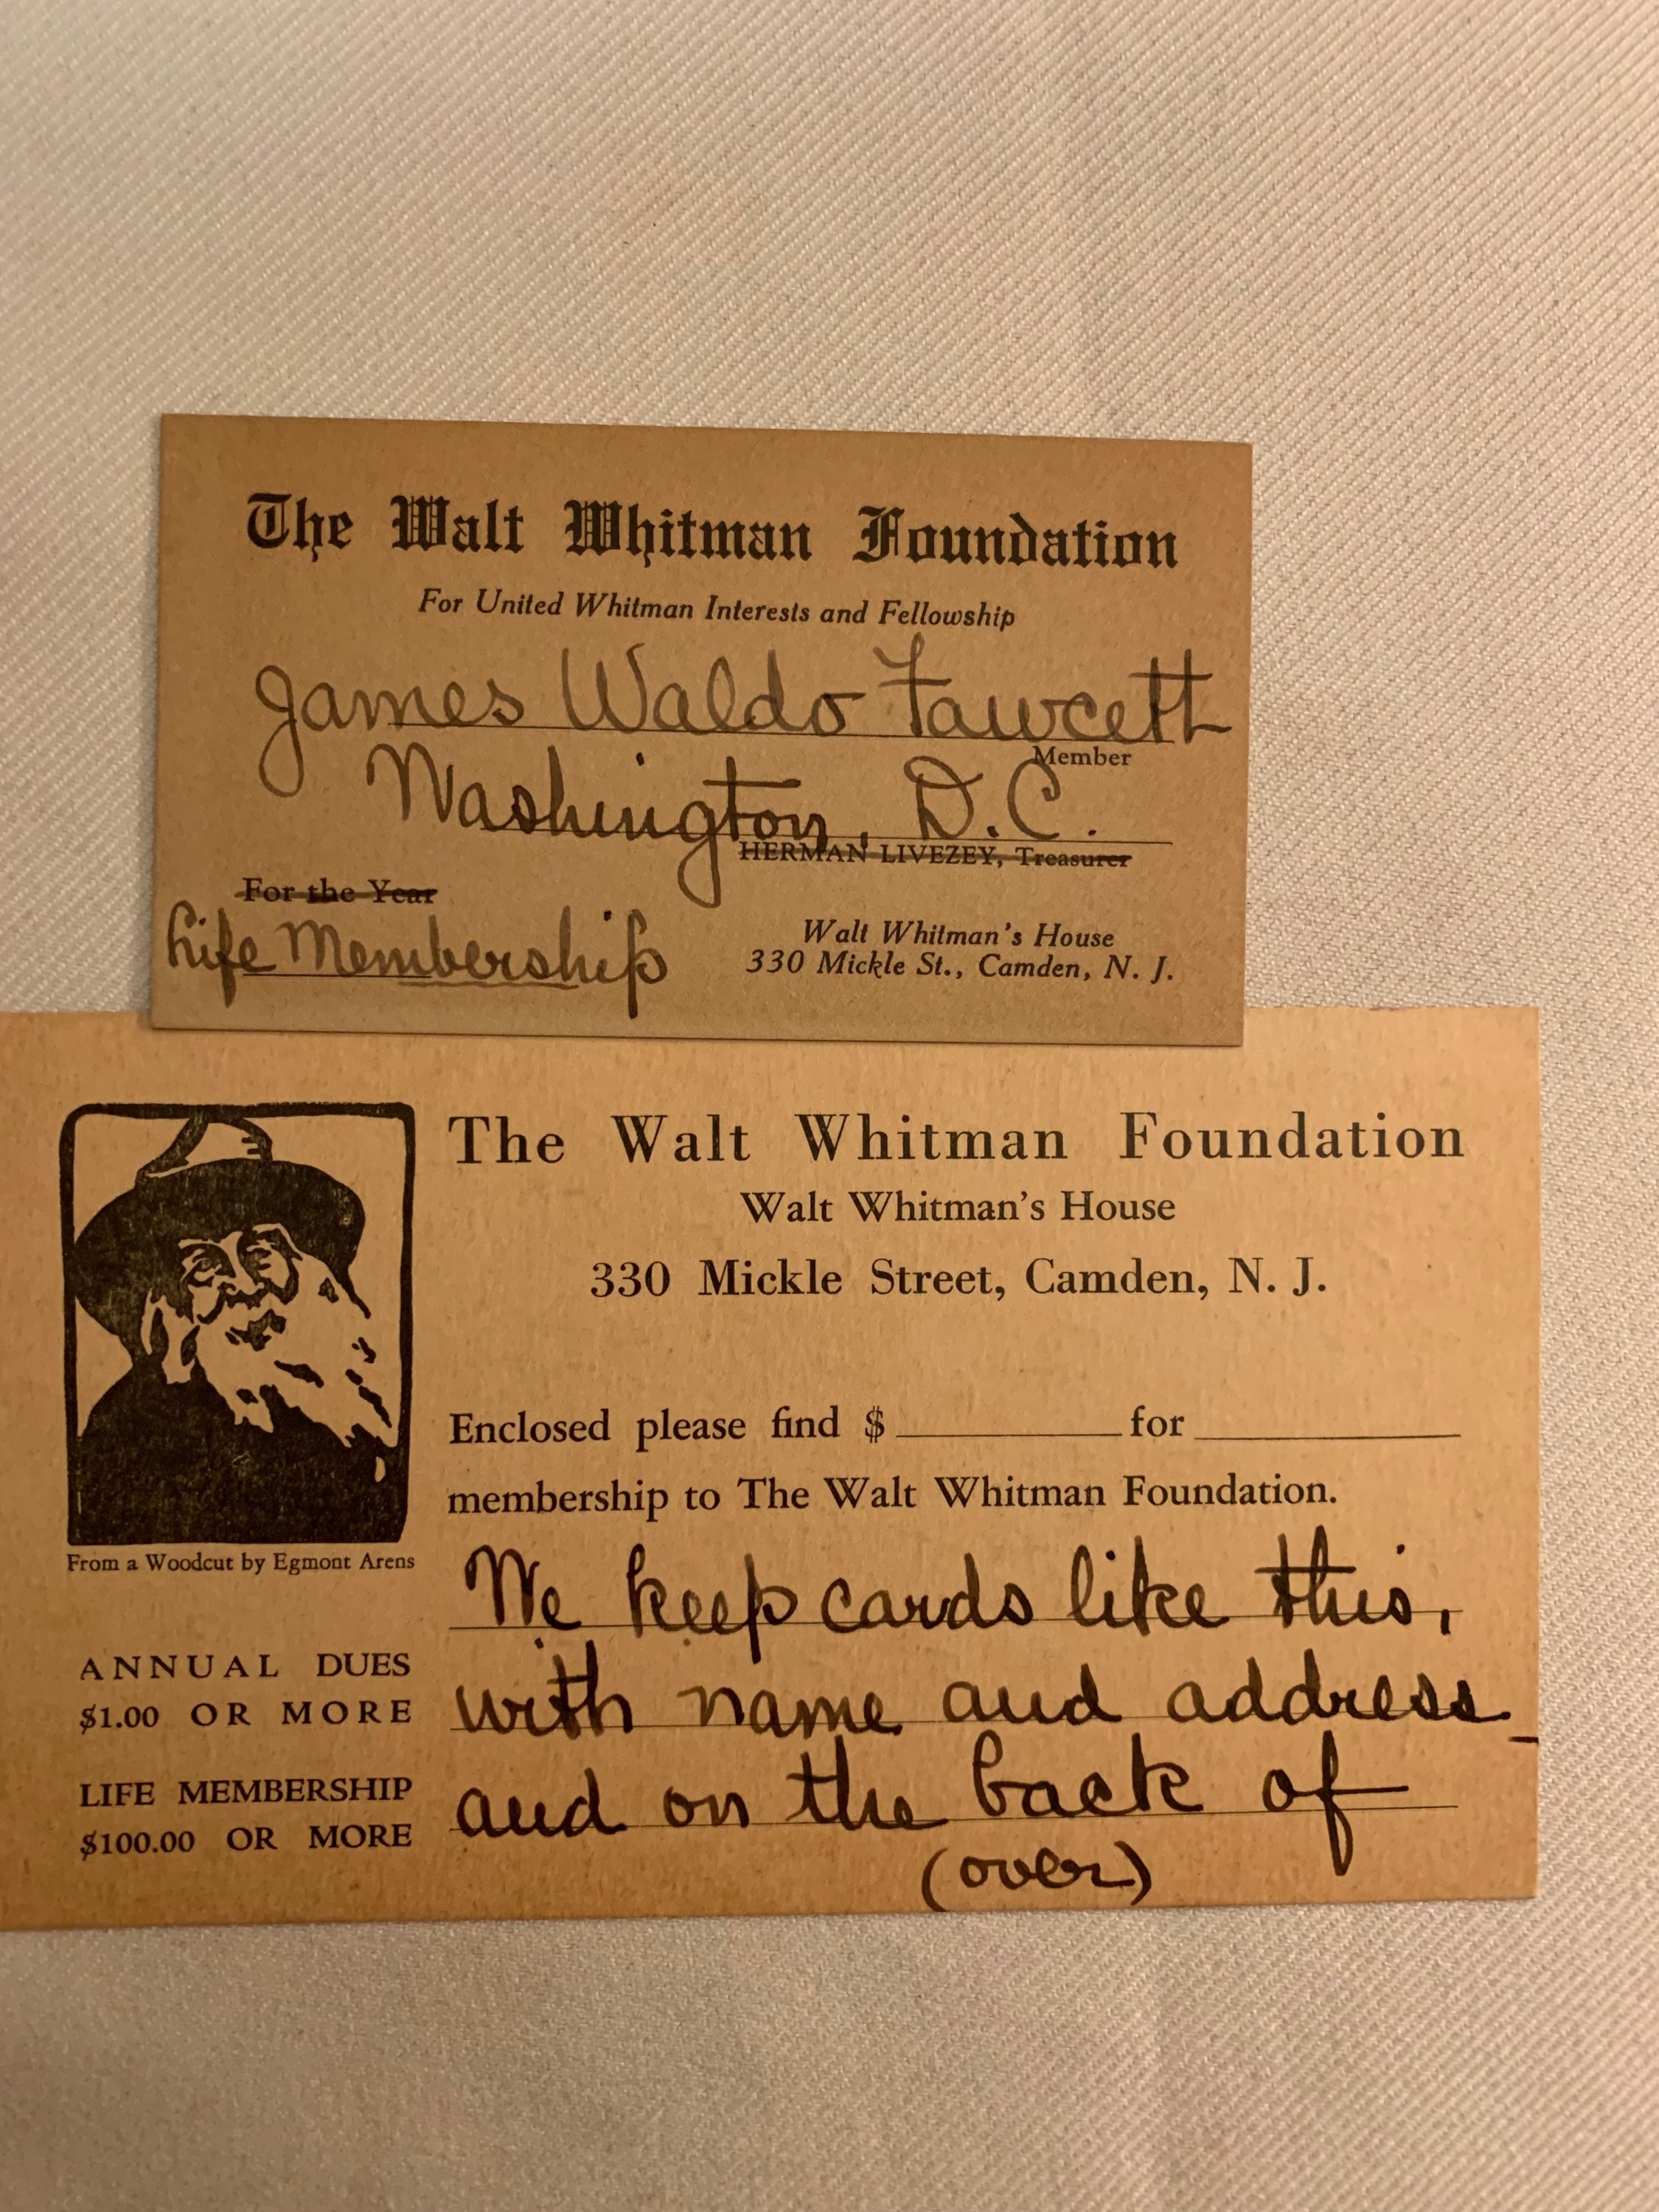 The Walt Whitman Foundation
For United Whitman Interests and Fellowship
James Waldo Fawcett
Member
Washington, D.C.
HERMAN LIVEZEY, Treasurer
For the Year
Life Membership
Walt Whitman's House
330 Mickle St., Camden, N. J.
The Walt Whitman Foundation
Walt Whitman's House
330 Mickle Street, Camden, N. J.
Enclosed please find $ for
membership to The Walt Whitman Foundation.
From a Woodcut by Egmont Arens
We keep cards like this,
with name and address
and on the back of
(over)
ANNUAL DUES
$1.00 OR MORE
LIFE MEMBERSHIP
$100.00 OR MORE